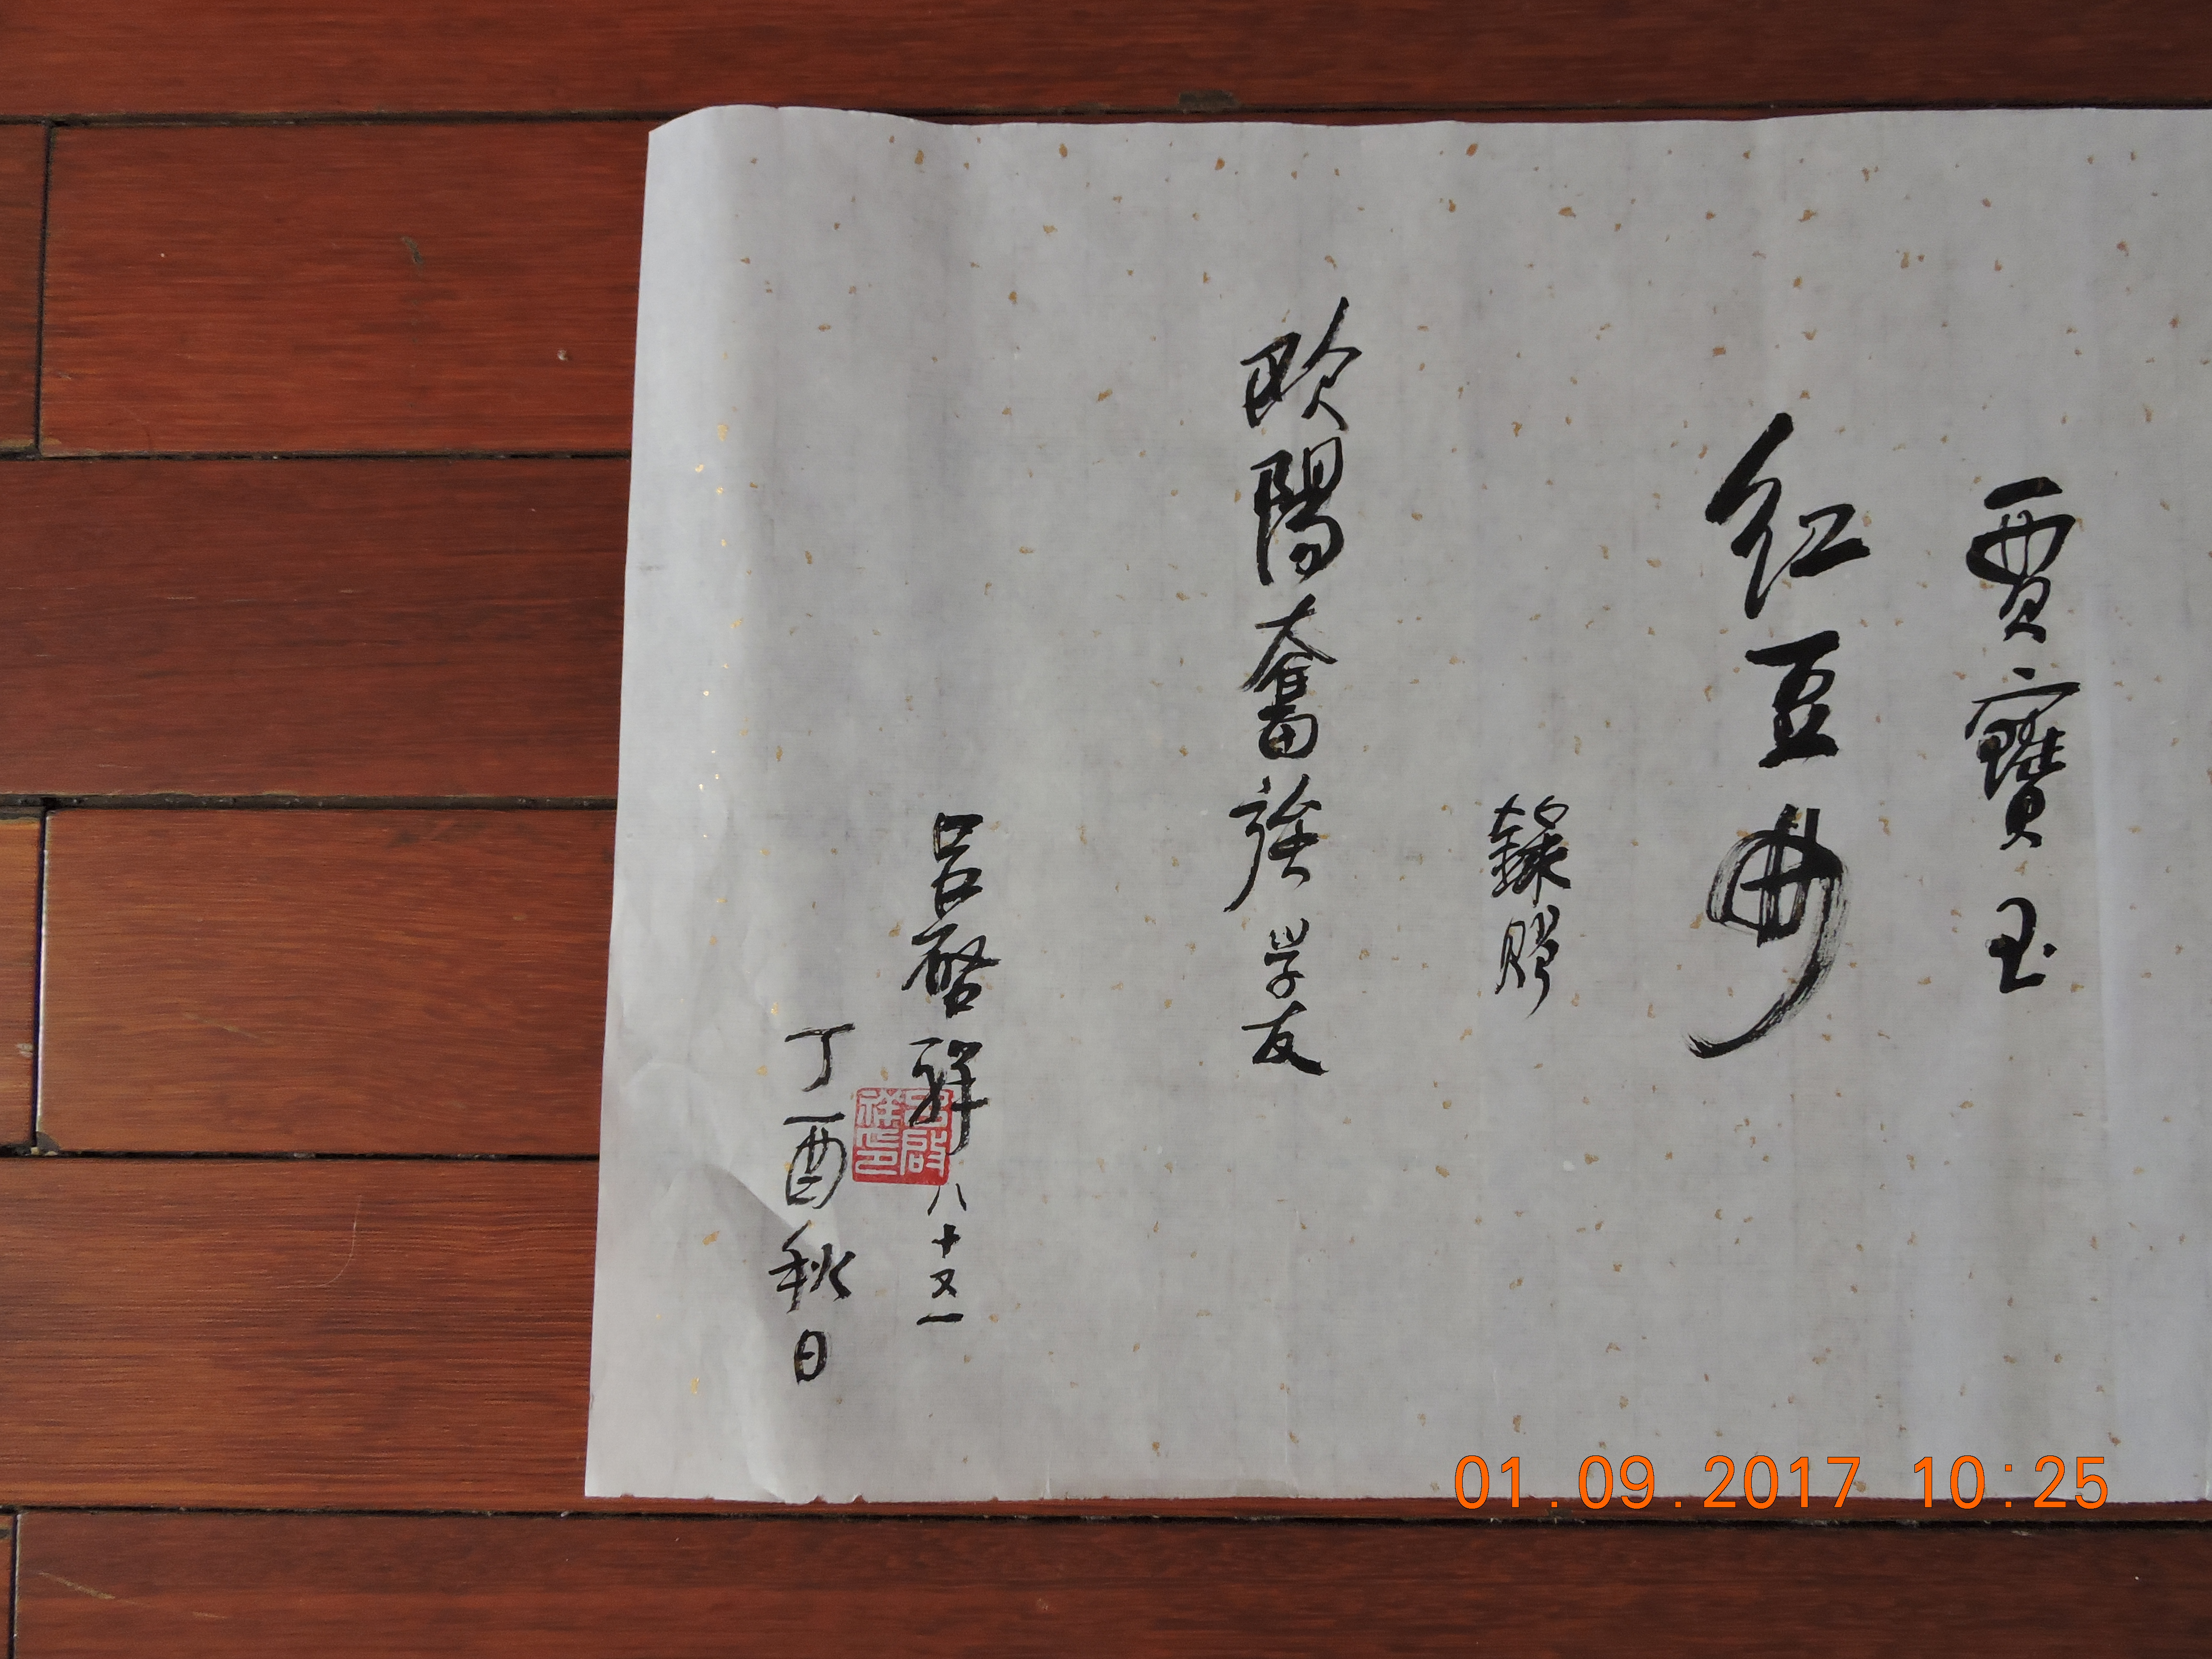 賈寶玉
红豆曲
錄贈
欧陽奮強学友
吕啓祥八十又一
丁酉秋日
吕啟祥印
01.09.2017 10:25